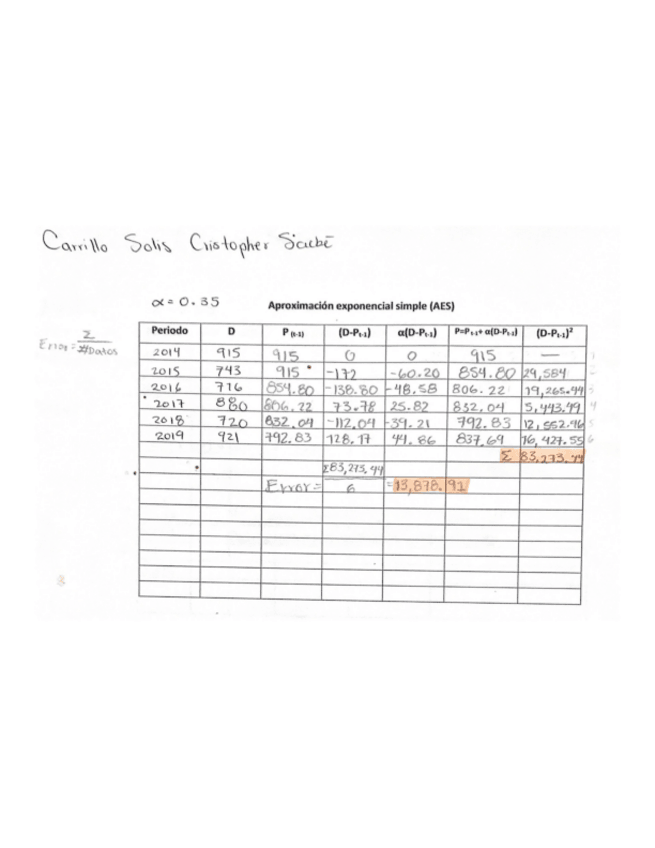 Carrillo Solis Cristopher Sicabé
α = 0.35
Aproximación exponencial simple (AES)
Error = Σ / #Datos
Periodo D P (t-1) (D-Pt-1) α(D-Pt-1) P=Pt-1+ α(D-Pt-1) (D-Pt-1)²
2014 915 915 0 0 915 —
2015 743 915 -172 -60.20 854.80 29,584
2016 716 854.80 -138.80 -48.58 806.22 19,265.44 3
2017 880 806.22 73.78 25.82 832.04 5,443.49 4
2018 720 832.04 -112.04 -39.21 792.83 12,552.96 5
2019 921 792.83 128.17 44.86 837.69 16,427.55 6
Σ 83,273.44
Σ83,273.44
Error = 6 = 13,878.91